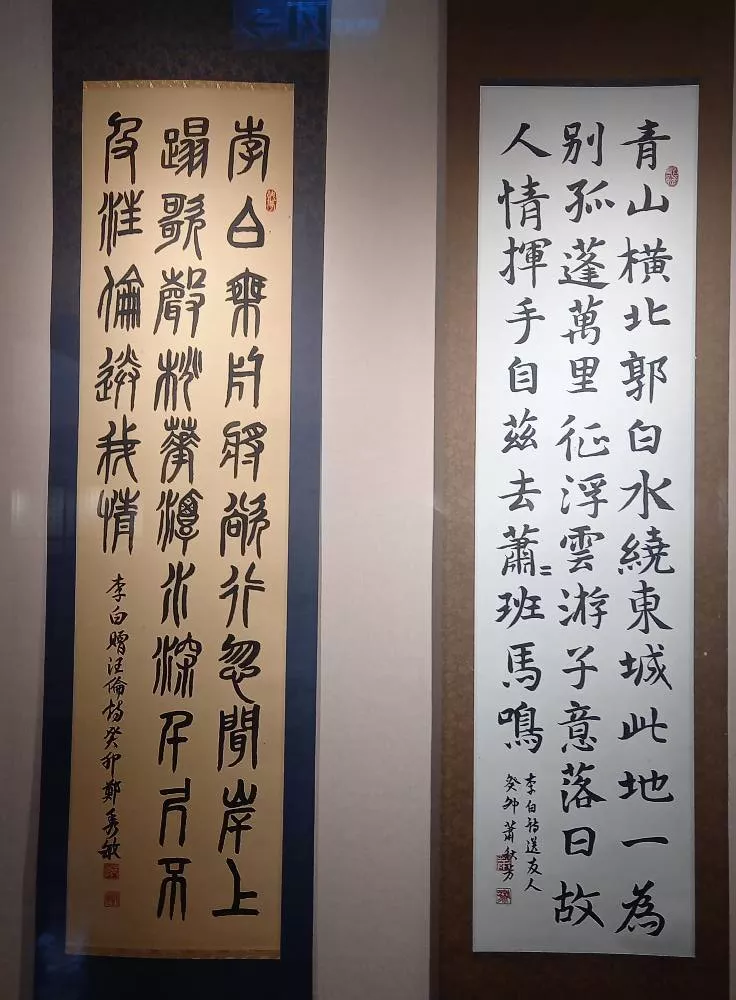 青山橫北郭白水繞東城此地一為
別孤蓬萬里征浮雲游子意落日故
人情揮手自茲去蕭〻班馬鳴
李白詩送友人
癸卯蕭秋芳
李白乘舟將欲行忽聞岸上
蹋歌聲桃華潭水深千尺不
及汪倫送我情
李白贈汪倫詩癸卯鄭敏